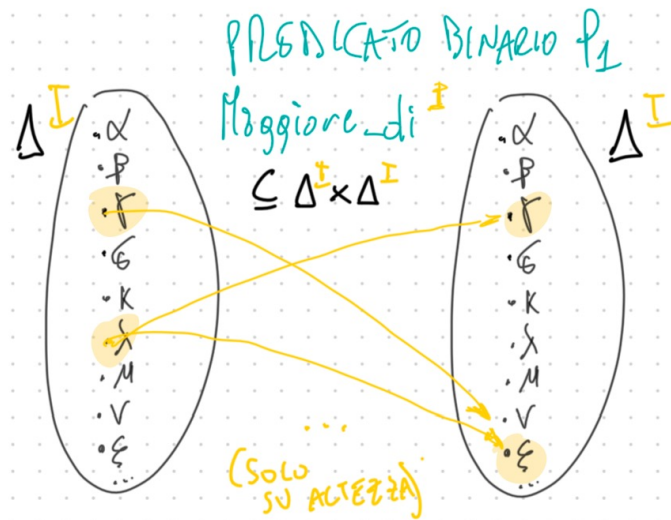 PREDICATO BINARIO P1
Maggiore_di^I
⊆ Δ^I × Δ^I
Δ^I
.α
.β
.γ
.ε
.κ
.λ
.μ
.ν
.ξ
...
Δ^I
.α
.β
.γ
.ε
.κ
.λ
.μ
.ν
.ξ
...
...
(SOLO
SU ALTEZZA)